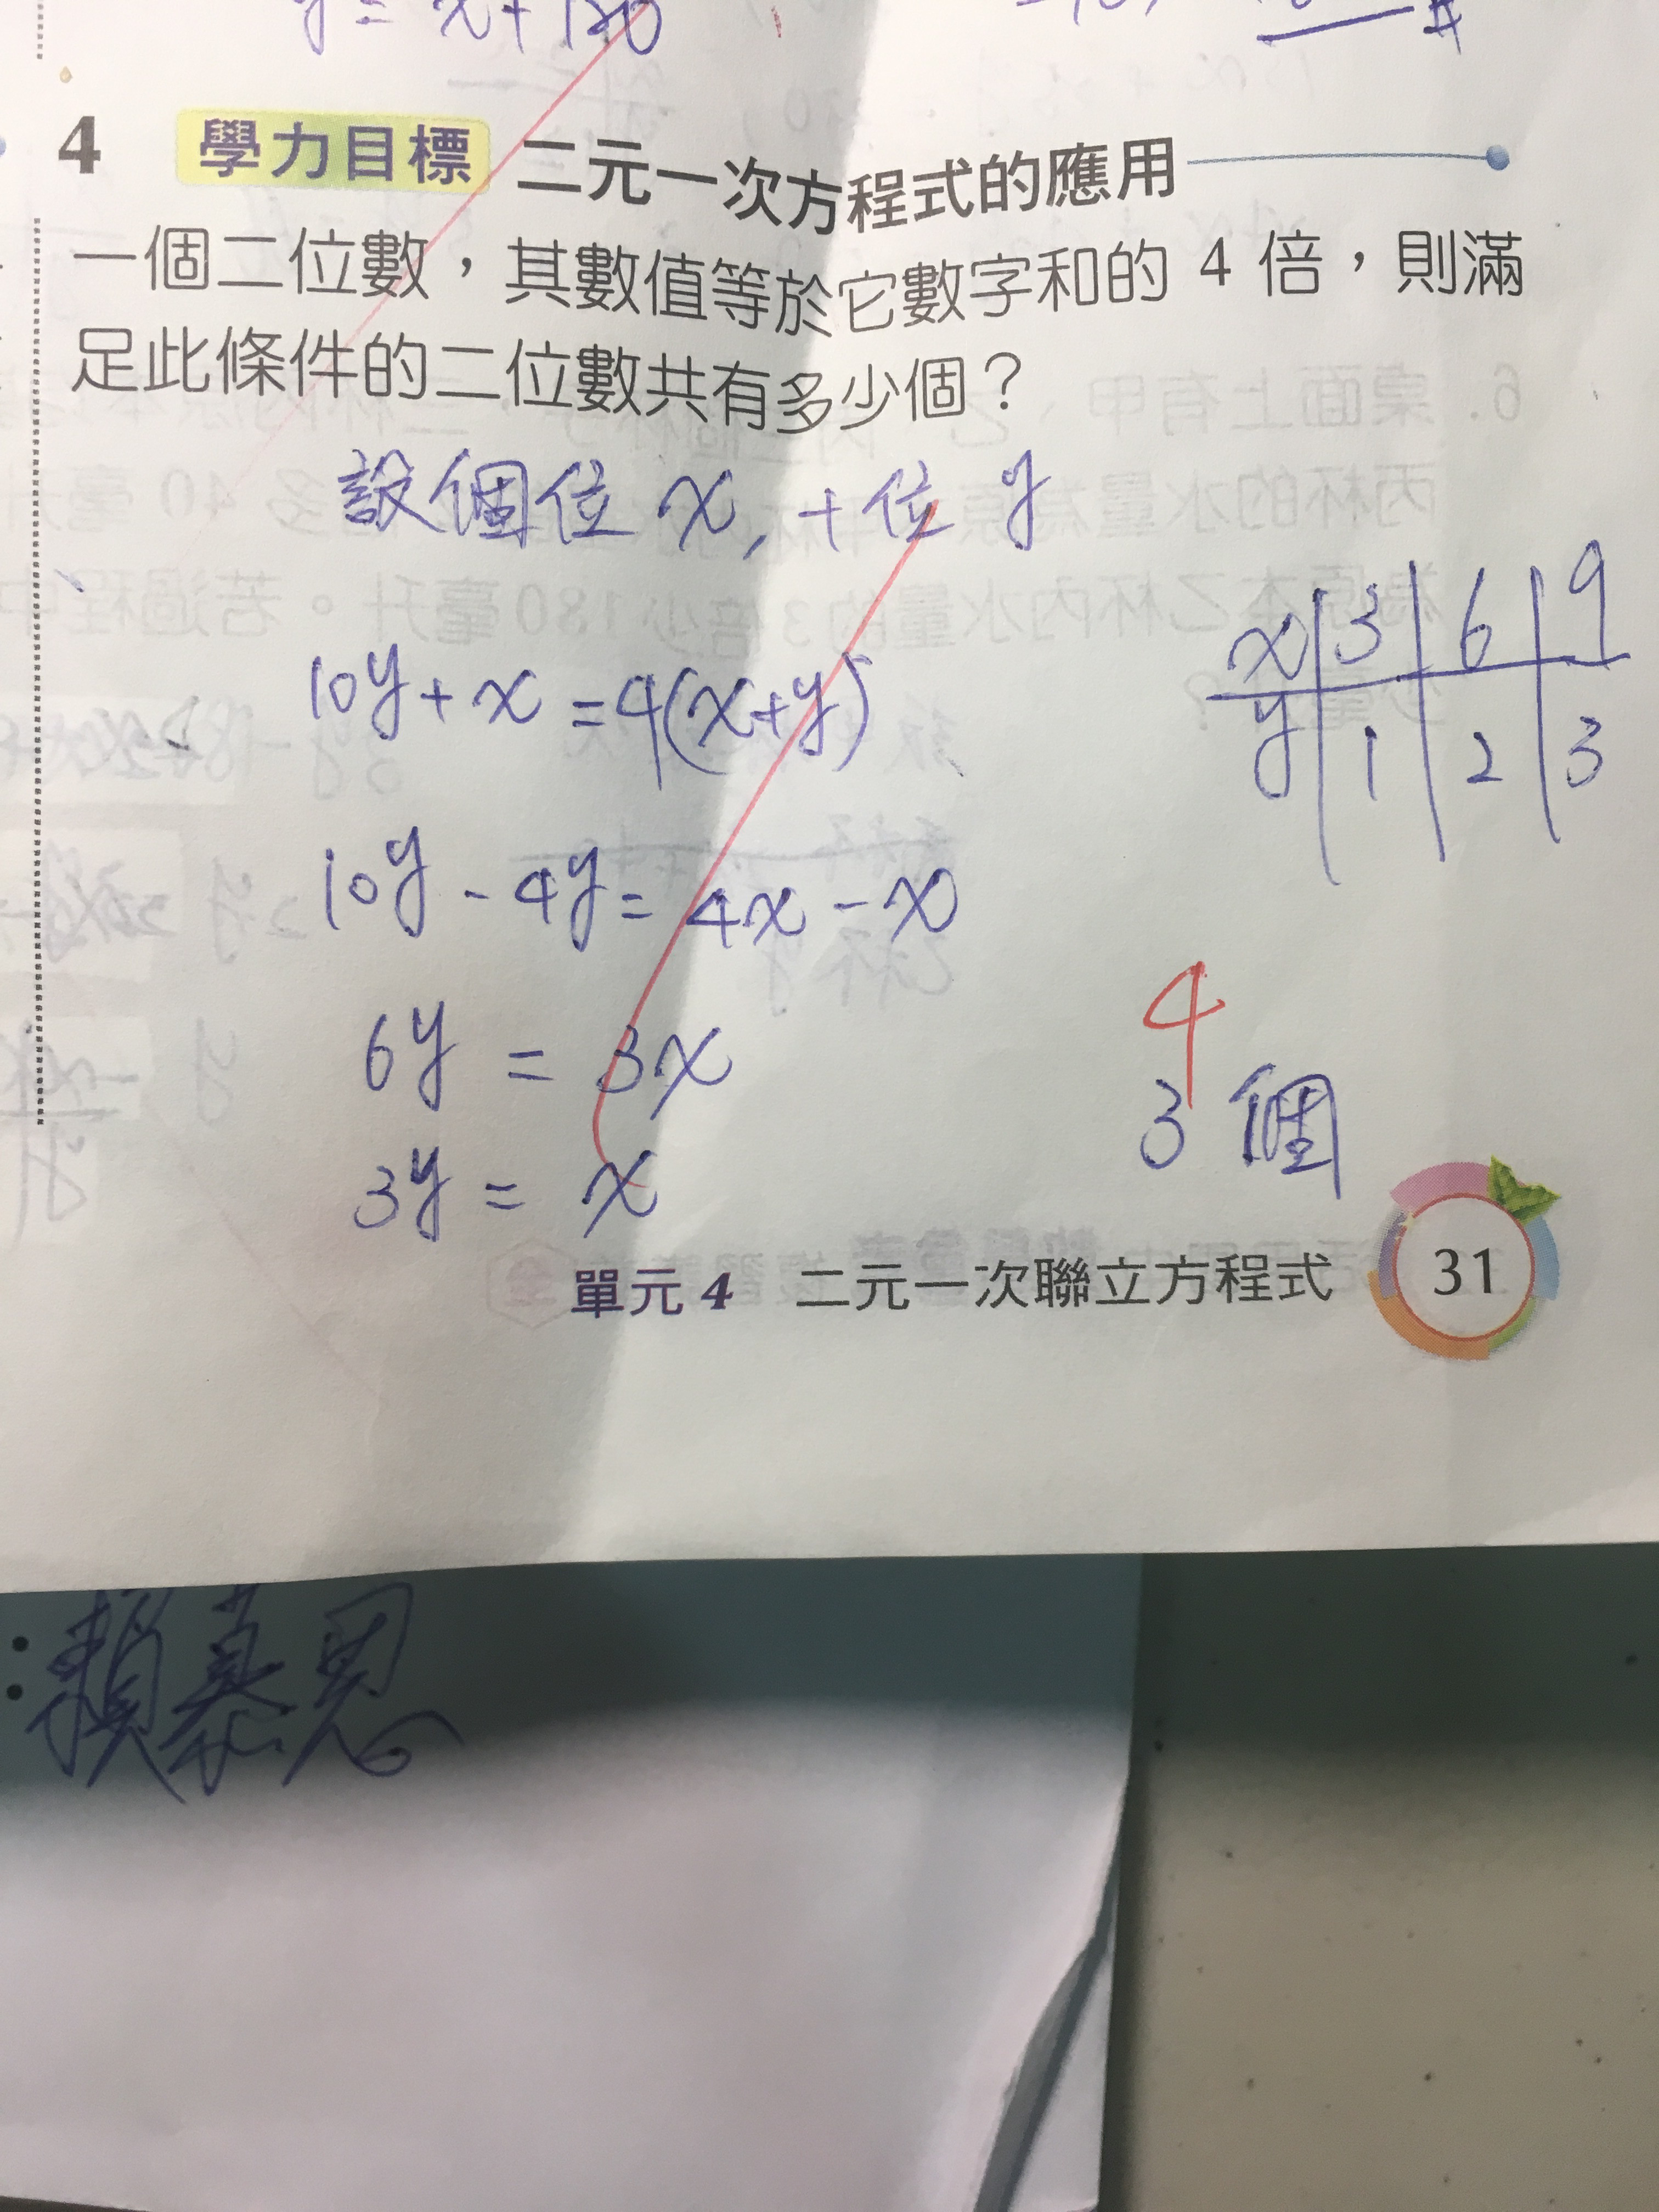 y = x + 120
4 學力目標 二元一次方程式的應用
一個二位數，其數值等於它數字和的 4 倍，則滿
足此條件的二位數共有多少個？
設個位 x, 十位 y
10y + x = 4(x+y)
10y - 4y = 4x - x
6y = 3x
3y = x
x 3 6 9
y 1 2 3
4
3個
單元 4 二元一次聯立方程式
31
：賴慕恩